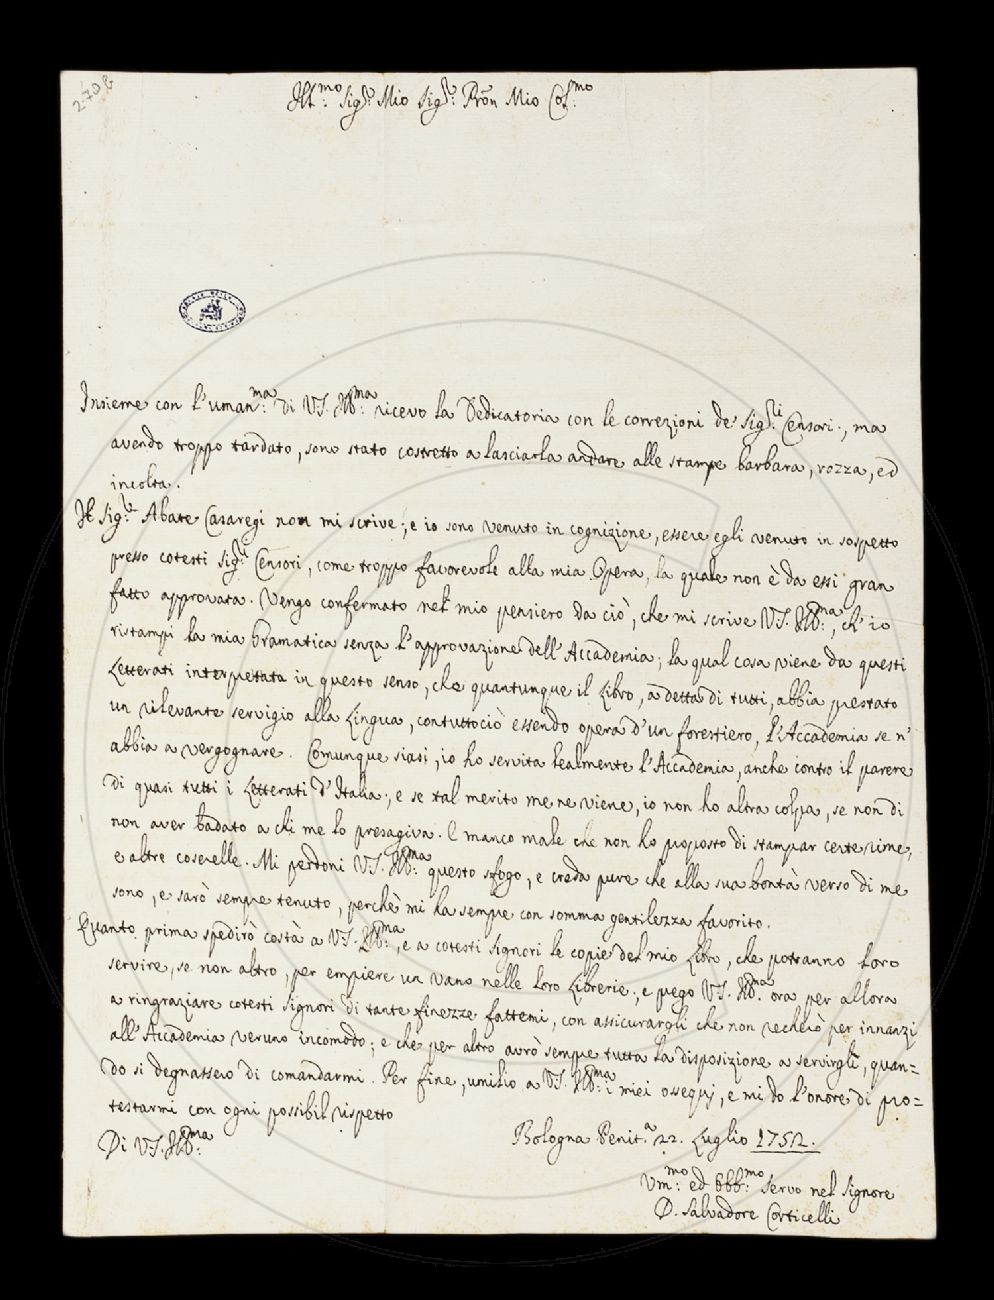 270 G
Ill.mo Sig.r Mio Sig.r Prõn Mio Col.mo
Insieme con l'uman.ma di VS. Ill.ma ricevo la Dedicatoria con le correzioni de' Sig.ri Censori; ma
avendo troppo tardato, sono stato costretto a lasciarla andare alle stampe barbara, rozza, ed
incolta.
Il Sig.r Abate Casaregi non mi scrive; e io sono venuto in cognizione, essere egli venuto in sospetto
presso cotesti Sig.ri Censori, come troppo favorevole alla mia Opera, la quale non è da essi gran
fatto approvata. Vengo confermato nel mio pensiero da ciò, che mi scrive VS. Ill.ma, ch'io
ristampi la mia Gramatica senza l'approvazione dell'Accademia; la qual cosa viene da questi
Letterati interpretata in questo senso, che quantunque il Libro, a detta di tutti, abbia prestato
un rilevante servigio alla Lingua, contuttociò essendo opera d'un forestiero, l'Accademia se n'
abbia a vergognare. Comunque siasi, io ho servita lealmente l'Accademia, anche contro il parere
di quasi tutti i Letterati d'Italia; e se tal merito me ne viene, io non ho altra colpa, se non di
non aver badato a chi me lo presagiva. E manco male che non ho proposto di stampar certe rime,
e altre coserelle. Mi perdoni VS. Ill.ma questo sfogo, e creda pure che alla sua bontà verso di me
sono, e sarò sempre tenuto, perchè mi ha sempre con somma gentilezza favorito.
Quanto prima spedirò costà a VS. Ill.ma, e a cotesti Signori le copie del mio Libro, che potranno loro
servire, se non altro, per empiere un vano nelle loro Librerie; e prego VS. Ill.ma ora per allora
a ringraziare cotesti Signori di tante finezze fattemi, con assicurargli che non recherò per innanzi
all'Accademia veruno incomodo; e che per altro avrò sempre tutta la disposizione a servirgli, quan=
do si degnassero di comandarmi. Per fine, umilio a VS. Ill.ma i miei ossequj, e mi do l'onore di pro=
testarmi con ogni possibil rispetto
Di VS. Ill.ma
Bologna Penit.a 22. Luglio 1752.
Um.mo ed Obb.mo servo nel Signore
D. Salvadore Corticelli